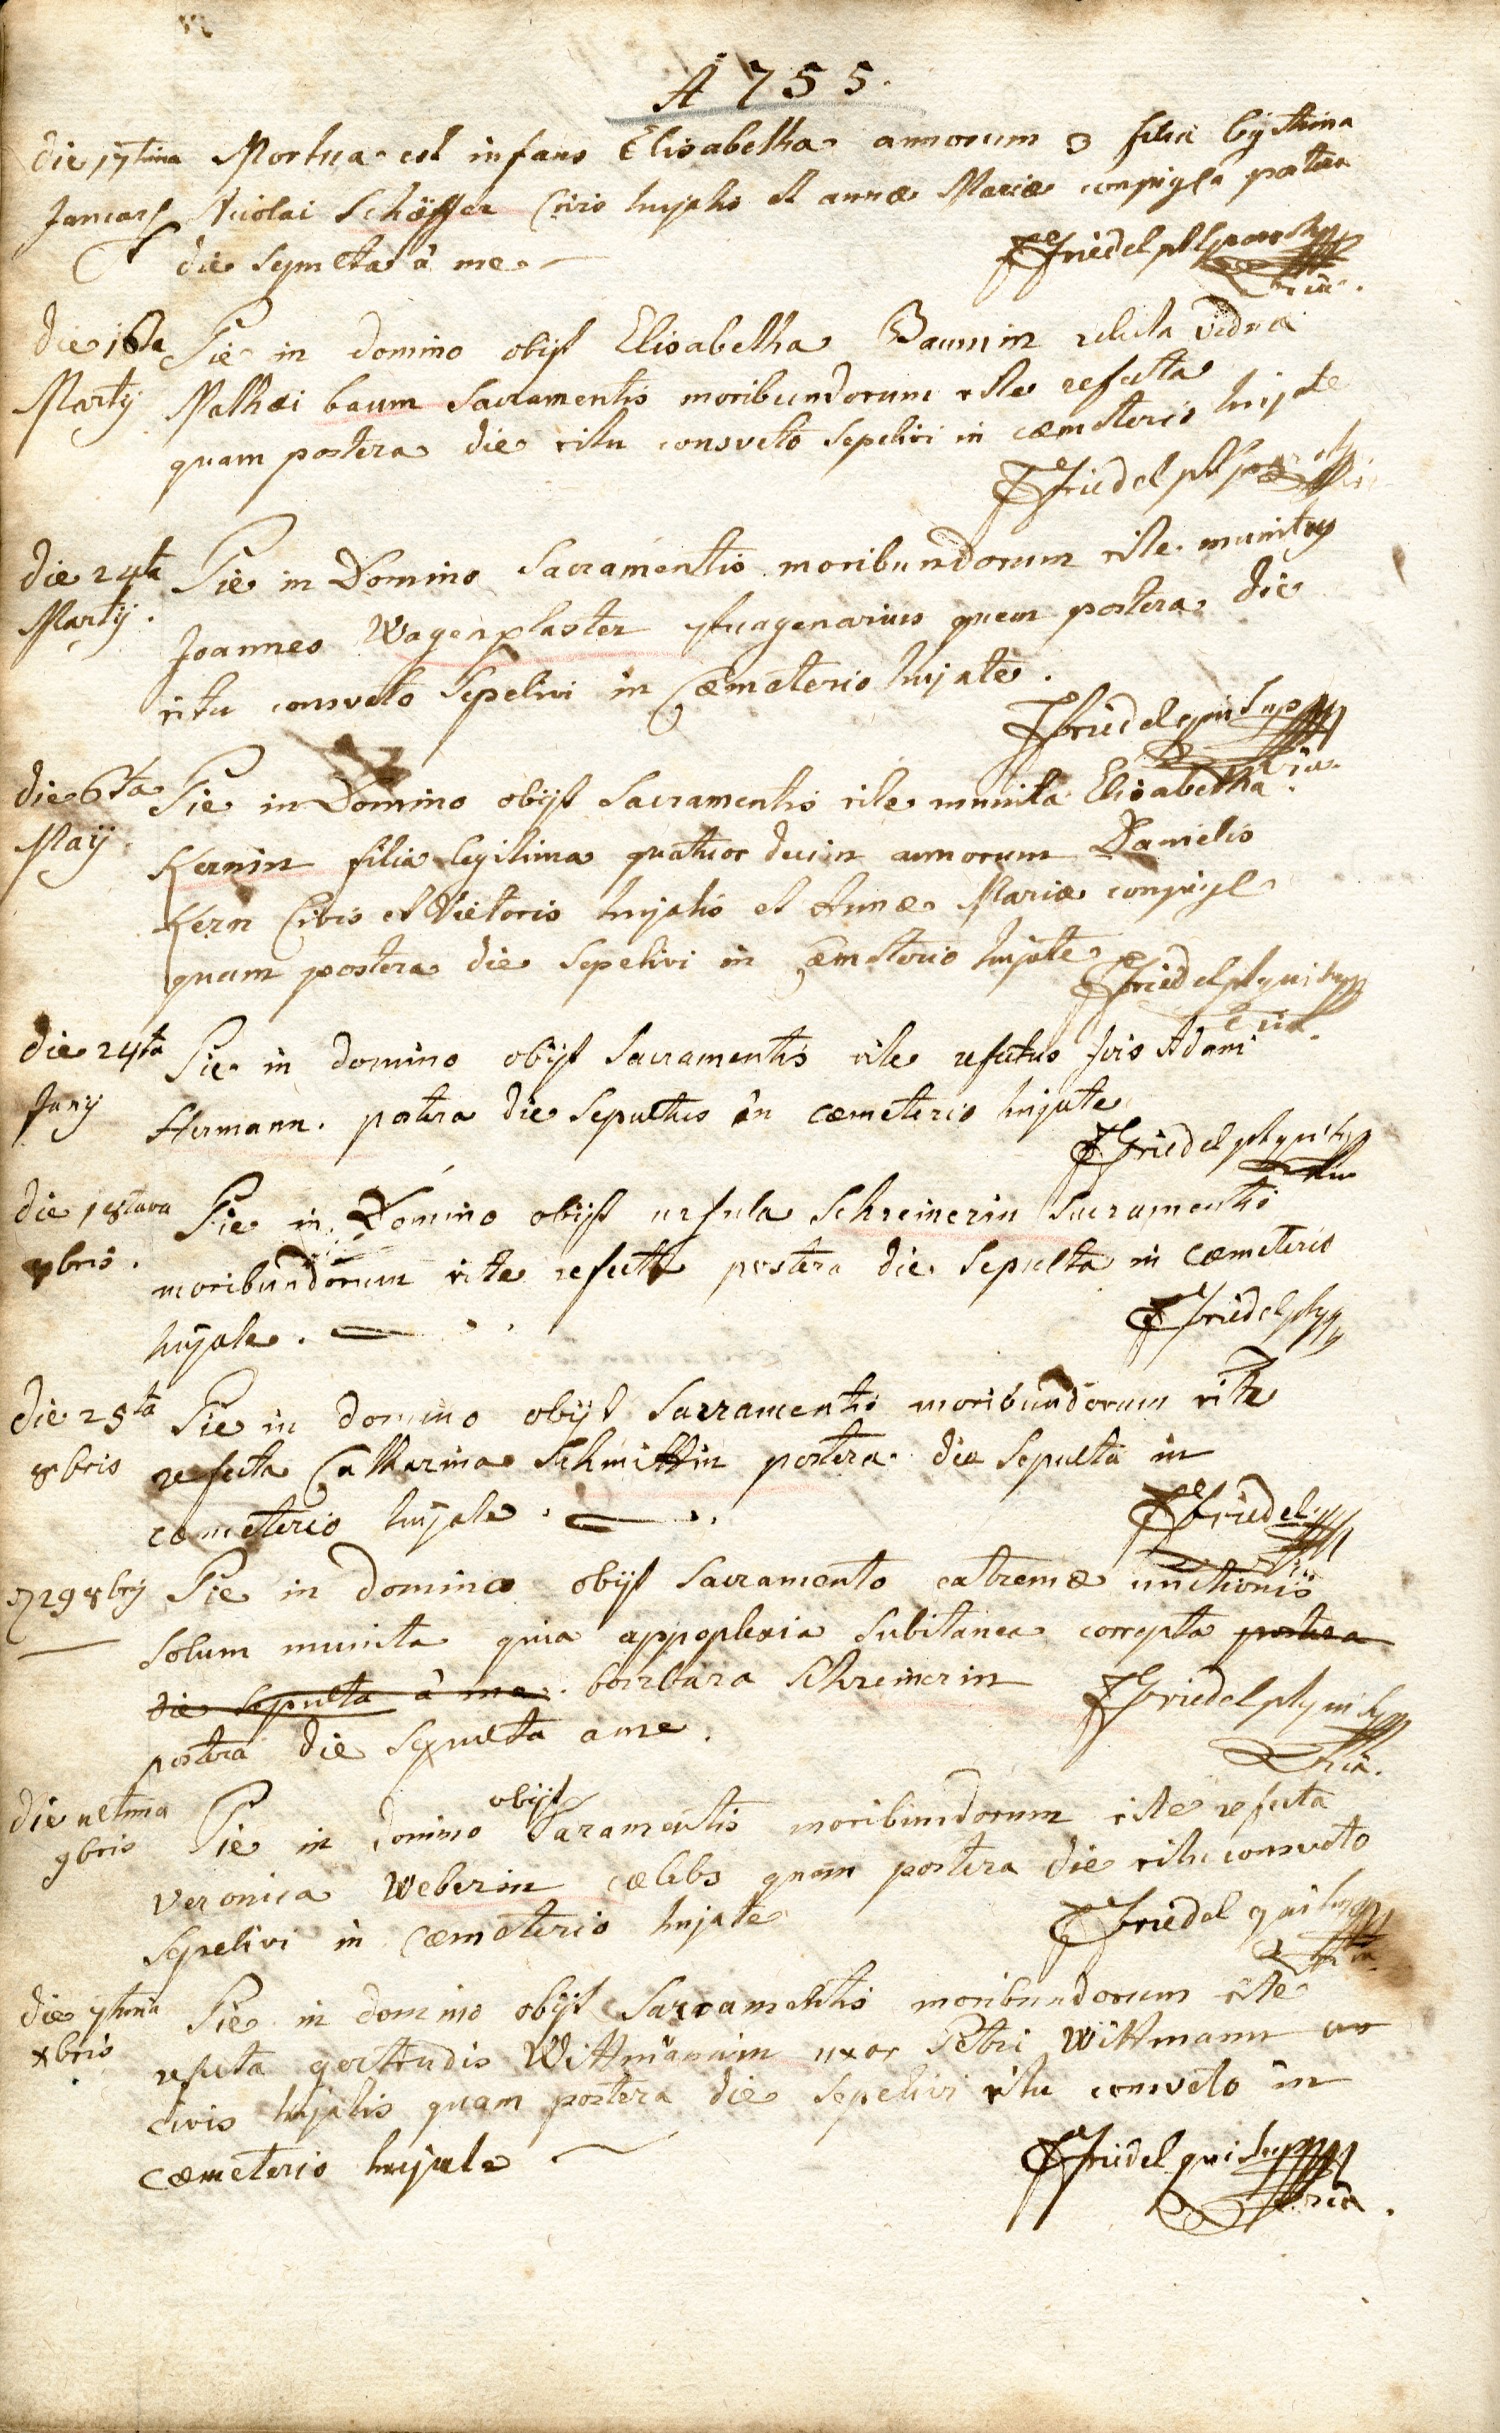 A 1755.
die 17tima Mortua est infans Elisabetha annorum 3 filia legitima
Januarij Nicolai Schäffer Civis hujatis et annæ Mariæ conjugis postera
die sepulta â me
Friedel
die 16ta Pie in domino obijt Elisabetha Baumin relicta vidua
Martij Mathæi baum Sacramentis moribundorum rite refecta
quam postera die ritu consveto sepelivi in cœmeterio hujate
Friedel
die 24ta Pie in Domino Sacramentis moribundorum rite munitus
Martij. Joannes Wagenplaster quem postera die
ritu consveto Sepelivi in Cœmeterio hujate.
Friedel
die 6ta Pie in Domino obijt Sacramentis rite munita Elisabetha
Maij. Kernin filia legitima quatuor decim annorum Danielis
Kern Civis et Vietoris hujatis et Annæ Mariæ conjugis
quam postera die sepelivi in cœmeterio hujate
Friedel
die 24ta Pie in domino obijt Sacramentis rite refectus Jois Adami
Junij Hermann. postera die Sepultus in cæmeterio hujate
Friedel
die 18tava Pie in Domino obijt ursula Schreinerin Sacramentis
7bris. moribundorum rite refecta postera die Sepulta in Cœmeterio
hujate.
Friedel
die 25ta Pie in domino obijt Sacramentis moribundorum rite
8bris refecta Catharina Schmittin postera die Sepulta in
cœmeterio hujate.
Friedel
29 8bris Pie in domino obijt Sacramento extremæ unctionis
Solum munita quia appoplexia Subitanea correpta postera
die sepulta â me. barbara Schreinerin
Friedel
postera die Sepulta a me.
die ultima Pie in domino obijt Sacramentis moribundorum rite refecta
9bris Veronica Weberin cælebs quam postera die ritu consveto
Sepelivi in cæmeterio hujate
Friedel
die 7tima Pie in domino obijt Sacramentis moribundorum rite
xbris refecta gertrudis Wittmännin uxor Petri Wittmann
civis hujatis quam postera die Sepelivi ritu consveto in
Cœmeterio hujate
Friedel